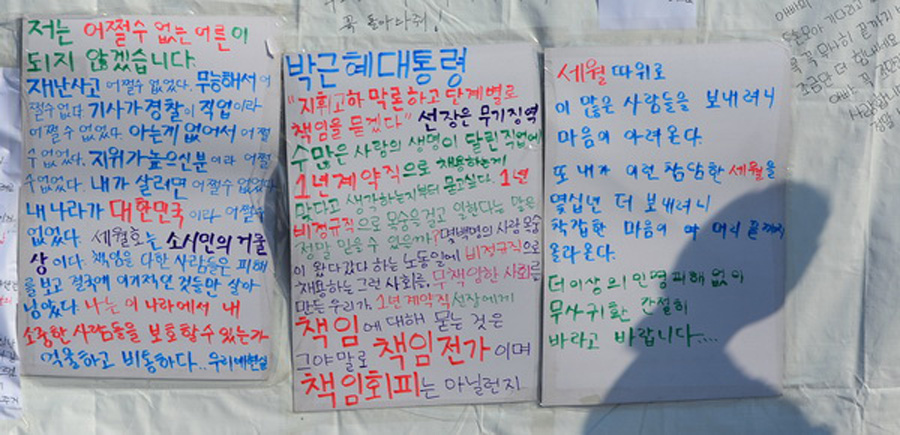 꼭 돌아와줘!
저는 어쩔수 없는 어른이
되지 않겠습니다.
재난사고 어쩔수 없었다. 무능해서 어
쩔수없다 기사가 경찰이 직업이라
어쩔수 없었다. 아는게 없어서 어쩔
수 없었다. 지위가 높으신분이라 어쩔
수없었다. 내가 살려면 어쩔수 없었다
내 나라가 대한민국이라 어쩔수
없었다. 세월호는 소시민의 거울
상이다. 책임을 다한 사람들은 피해
를 보고 결국에 이기적인 것들만 살아
남았다. 나는 이 나라에서 내
소중한 사람들을 보호할수 있는가
억울하고 비통하다.. 우리의현실
박근혜대통령
"지휘고하 막론하고 단계별로
책임을 묻겠다" 선장은 무기징역
수많은 사람의 생명이 달린 직업에
1년 계약직으로 채용하는게
맞다고 생각하는지부터 묻고싶다. 1년
비정규직으로 목숨을걸고 일한다는 말은
정말 믿을수 있은까? 몇백명의 사람 목숨
이 왔다갔다 하는 노동일에 비정규직으로
채용하는 그런 사회를, 무책임한 사회를
만든 우리가, 1년 계약직 선장에게
책임에 대해 묻는 것은
그야말로 책임전가이며
책임회피는 아닐런지
세월 따위로
이 많은 사람들을 보내려니
마음이 아려온다.
또 내가 이런 참담한 세월을
몇십년 더 보내려니
착잡한 마음이 머리 끝까지
올라온다.
더이상의 인명피해 없이
무사귀환 간절히
바라고 바랍니다....